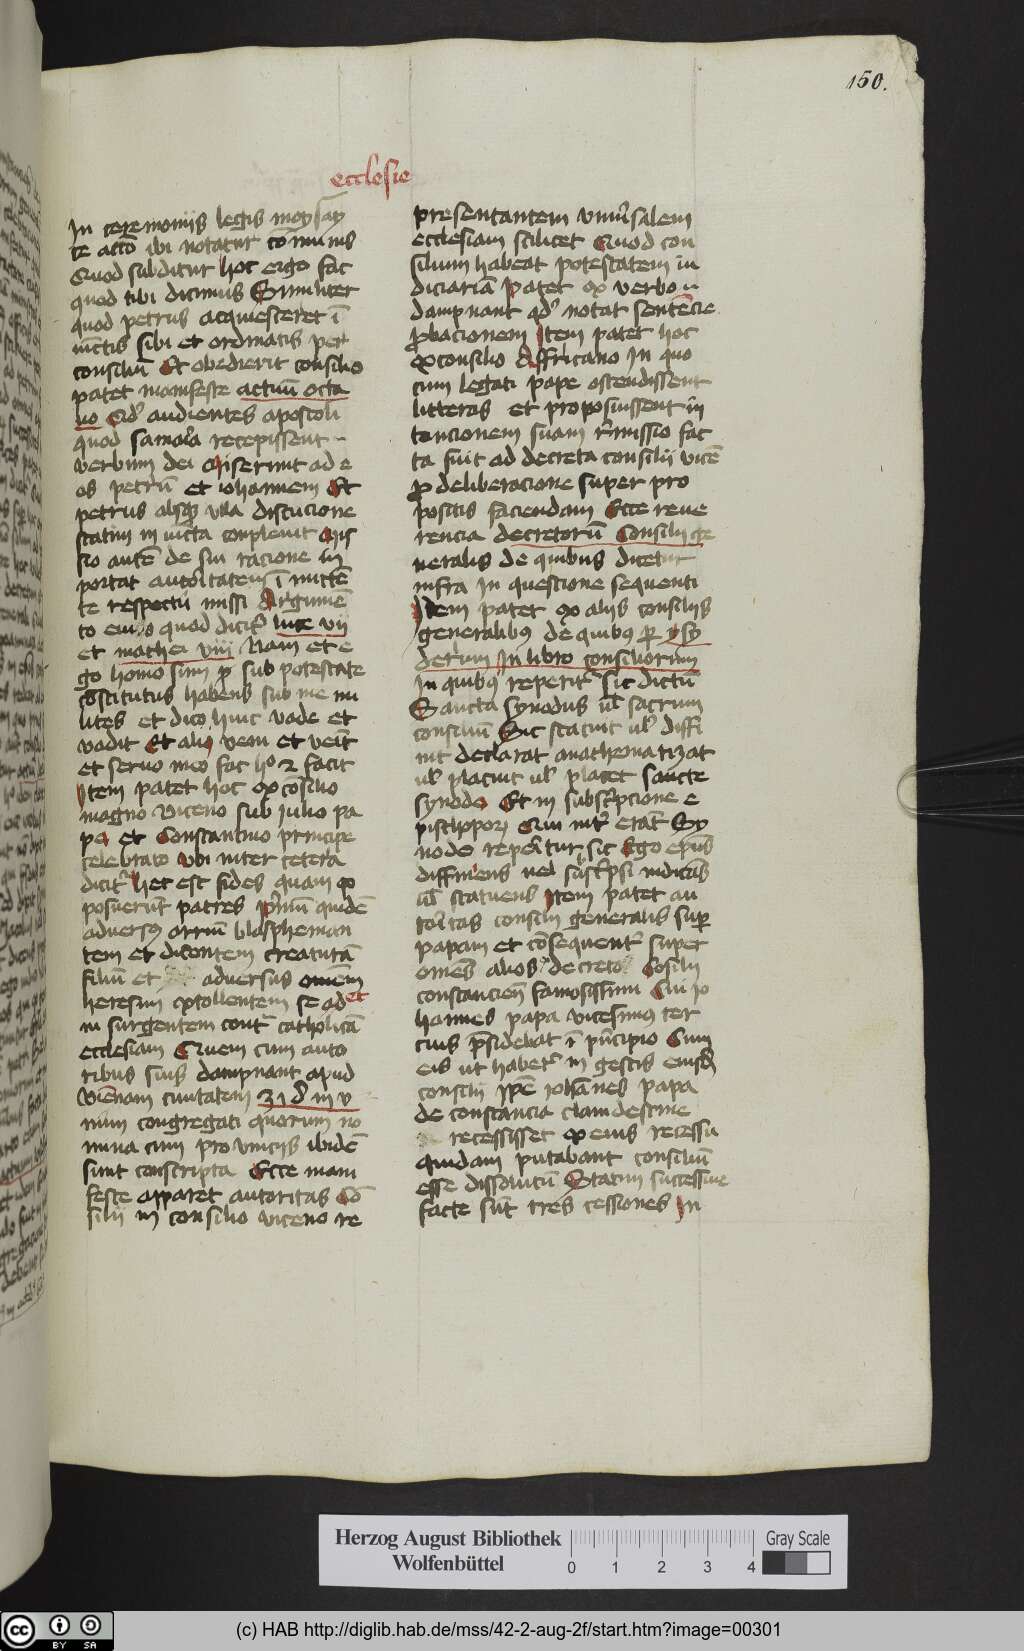 150.
ecclesie
In ceremoniis legis moysay
te acto ibi notatur cō munis
Quod subditur hoc ergo fac
quod tibi dicimus Similiter
quod petrus acquiesceret ī
iūctis sibi et ordinatis per
consiliū Et obedierit consilio
patet manifeste actuū octa
uo Qd' audientes apostoli
quod samaria recepissent
verbum dei Miserunt ad e
os petrū et iohannem Et
petrus absqȝ vlla discucione
statim in iūcta compleuit Mis
sio autē de sui racione in
portat autoritatem ī mittē
te respectu missi Argumē
to eius quod dicit' luce vii
et mathei viii Nam et e
go homo sum sub potestate
cōstitutus habens sub me mi
lites et dico huic vade et
vadit Et alio veni et venit
et seruo meo fac hoc et facit
Item patet hoc ex cōsilio
magno Niceno sub Iulio pa
pa et Constantino principe
celebrato vbi inter cetera
dicit' hec est fides quam ex
posuerūt patres primū quidē
aduersus arrium blaspheman
tem et dicentem creaturā
filiū et aduersus omēm
heresim extollentem se ad et
in surgentem cont' catholicā
ecclesiam Quem cum auto
ribus suis dampnant apud
Nicenam ciuitatem
num congregati quorum no
mina cum prouinciis ibidē
sunt conscripta Ecce mani
feste apparet autoritas Cō
silii in consilio niceno re
presentantem vniu'salem
ecclesiam scilicet Quod con
silium habeat potestatem iu
diciariā patet ex verbo
dampnant qd' notat sentēcie
probacionem Item patet hoc
ex consilio affricano In quo
cum legati pape ostendissent
litteras et proposuissent in
tencionem suam r'missio fac
ta fuit ad decreta consilii nicē
pro deliberacione super pro
positis faciendam Ecce reue
rencia decretorū Consilii ge
neralis de quibus dicetur
infra In questione sequenti
Idem patet ex aliis consiliis
generalibus de quibus per ysy
derum In libro consiliorum
In quibus reperit' sic dictū
Sancta synodus ul' sacrum
consiliū Sic statuit ul' diffi
nit declarat anathematizat
ul' placuit ul' placet sancte
synodo Et in subscripcione e
pistcippor Qui int' erāt Sy
node reperitur sic Ego epūs
diffiniens uel subscripsi iudicās
ul' statuens Item patet au
toritas consilii generalis super
papam et cōsequent' super
omēs alios decreto Cōsilii
constancien famosissimi Cui io
hannes papa vicesimus ter
cius presidebat ī principio Cum
eis ut habet' in gestis eiusd
consilii Ipse iohānes papa
de constancia clamdestine
recessisset ex eius recessu
quidam putabant consiliū
esse dissolutū Statim successiue
facte sūt tres cessiones In
Herzog August Bibliothek
Wolfenbüttel
0 1 2 3 4
Gray Scale
cc BY SA
(c) HAB http://diglib.hab.de/mss/42-2-aug-2f/start.htm?image=00301